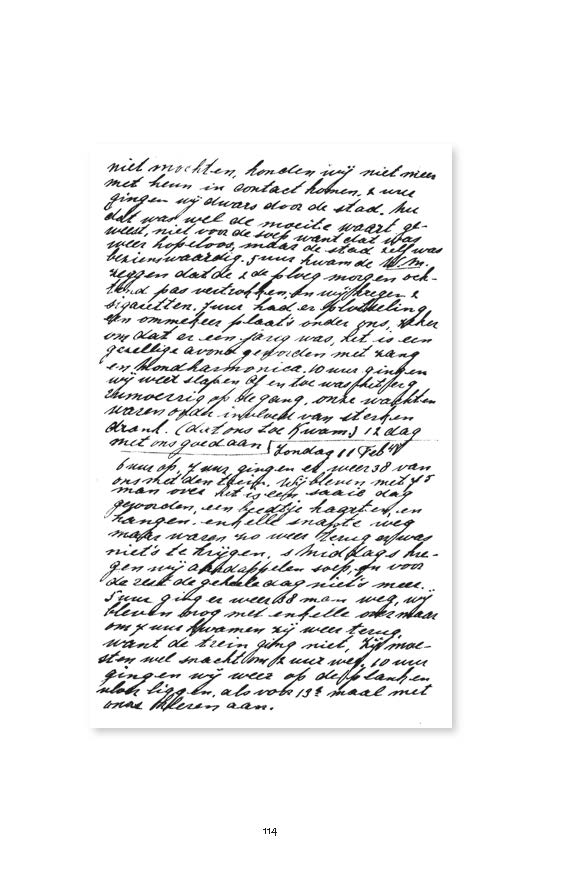 niet mochten, konden wij niet meer
met heun in contact komen, 2 uur
gingen wij dwars door de stad. Nu
dat was wel de moeite waart ge-
weest, niet voor de soep want dat was
weer hopeloos, maar de stad zelf was
bezienswaardig. 5 uur kwam de W.M.
zeggen dat de 2de ploeg morgen och-
tend pas vertrokken, en wij kregen 2
sigaretten. 7 uur had er plotseling
een ommekeer plaats onder ons, zeker
om dat er een jarig was, het is een
gezellige avond geworden met zang
en mondharmonica. 10 uur gingen
wij weer slapen Af en toe was het erg
rumoerig op de gang, onze wachten
waren onder invloed van sterken
drank. (dat ons toe kwam) 12 dag
met ons goed aan Zondag 11 Feb
6 uur op, 7 uur gingen er weer 38 van
ons met den trein. Wij bleven met 45
man over het is een saaie dag
geworden, een beedtje kaarten, en
hangen. enkelle snapte weg
maar waren zo weer terug er was
niets te krijgen, s middags kre-
gen wij aardappelen soep, en voor
de rest de geheele dag niets meer.
5 uur ging er weer 38 man weg, wij
bleven nog met enkelle over maar
om 7 uur kwamen zij weer terug.
want de trein ging niet, zij moe-
sten wel snacht om 2 uur weg, 10 uur
gingen wij weer op de planken
vloer liggen, als voor 13e maal met
onze kleren aan.
114